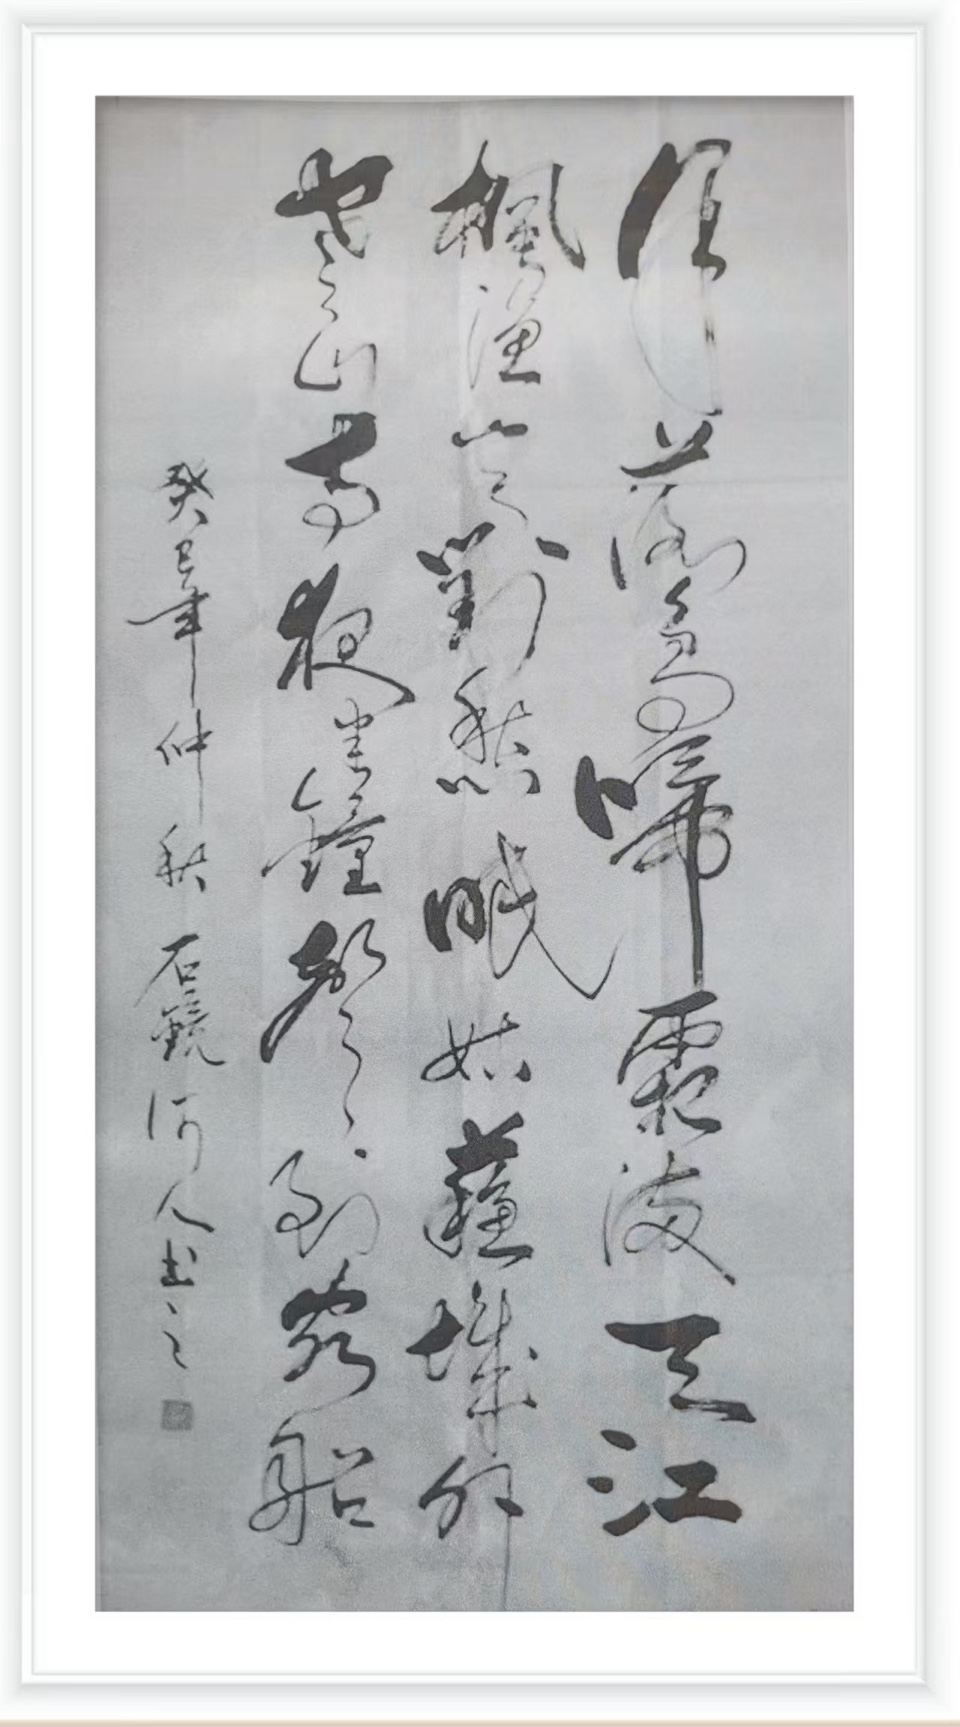 月落烏啼霜滿天江
楓漁火對愁眠姑蘇城外
寒山寺夜半鐘聲到客船
癸巳年仲秋石鏡河人書之